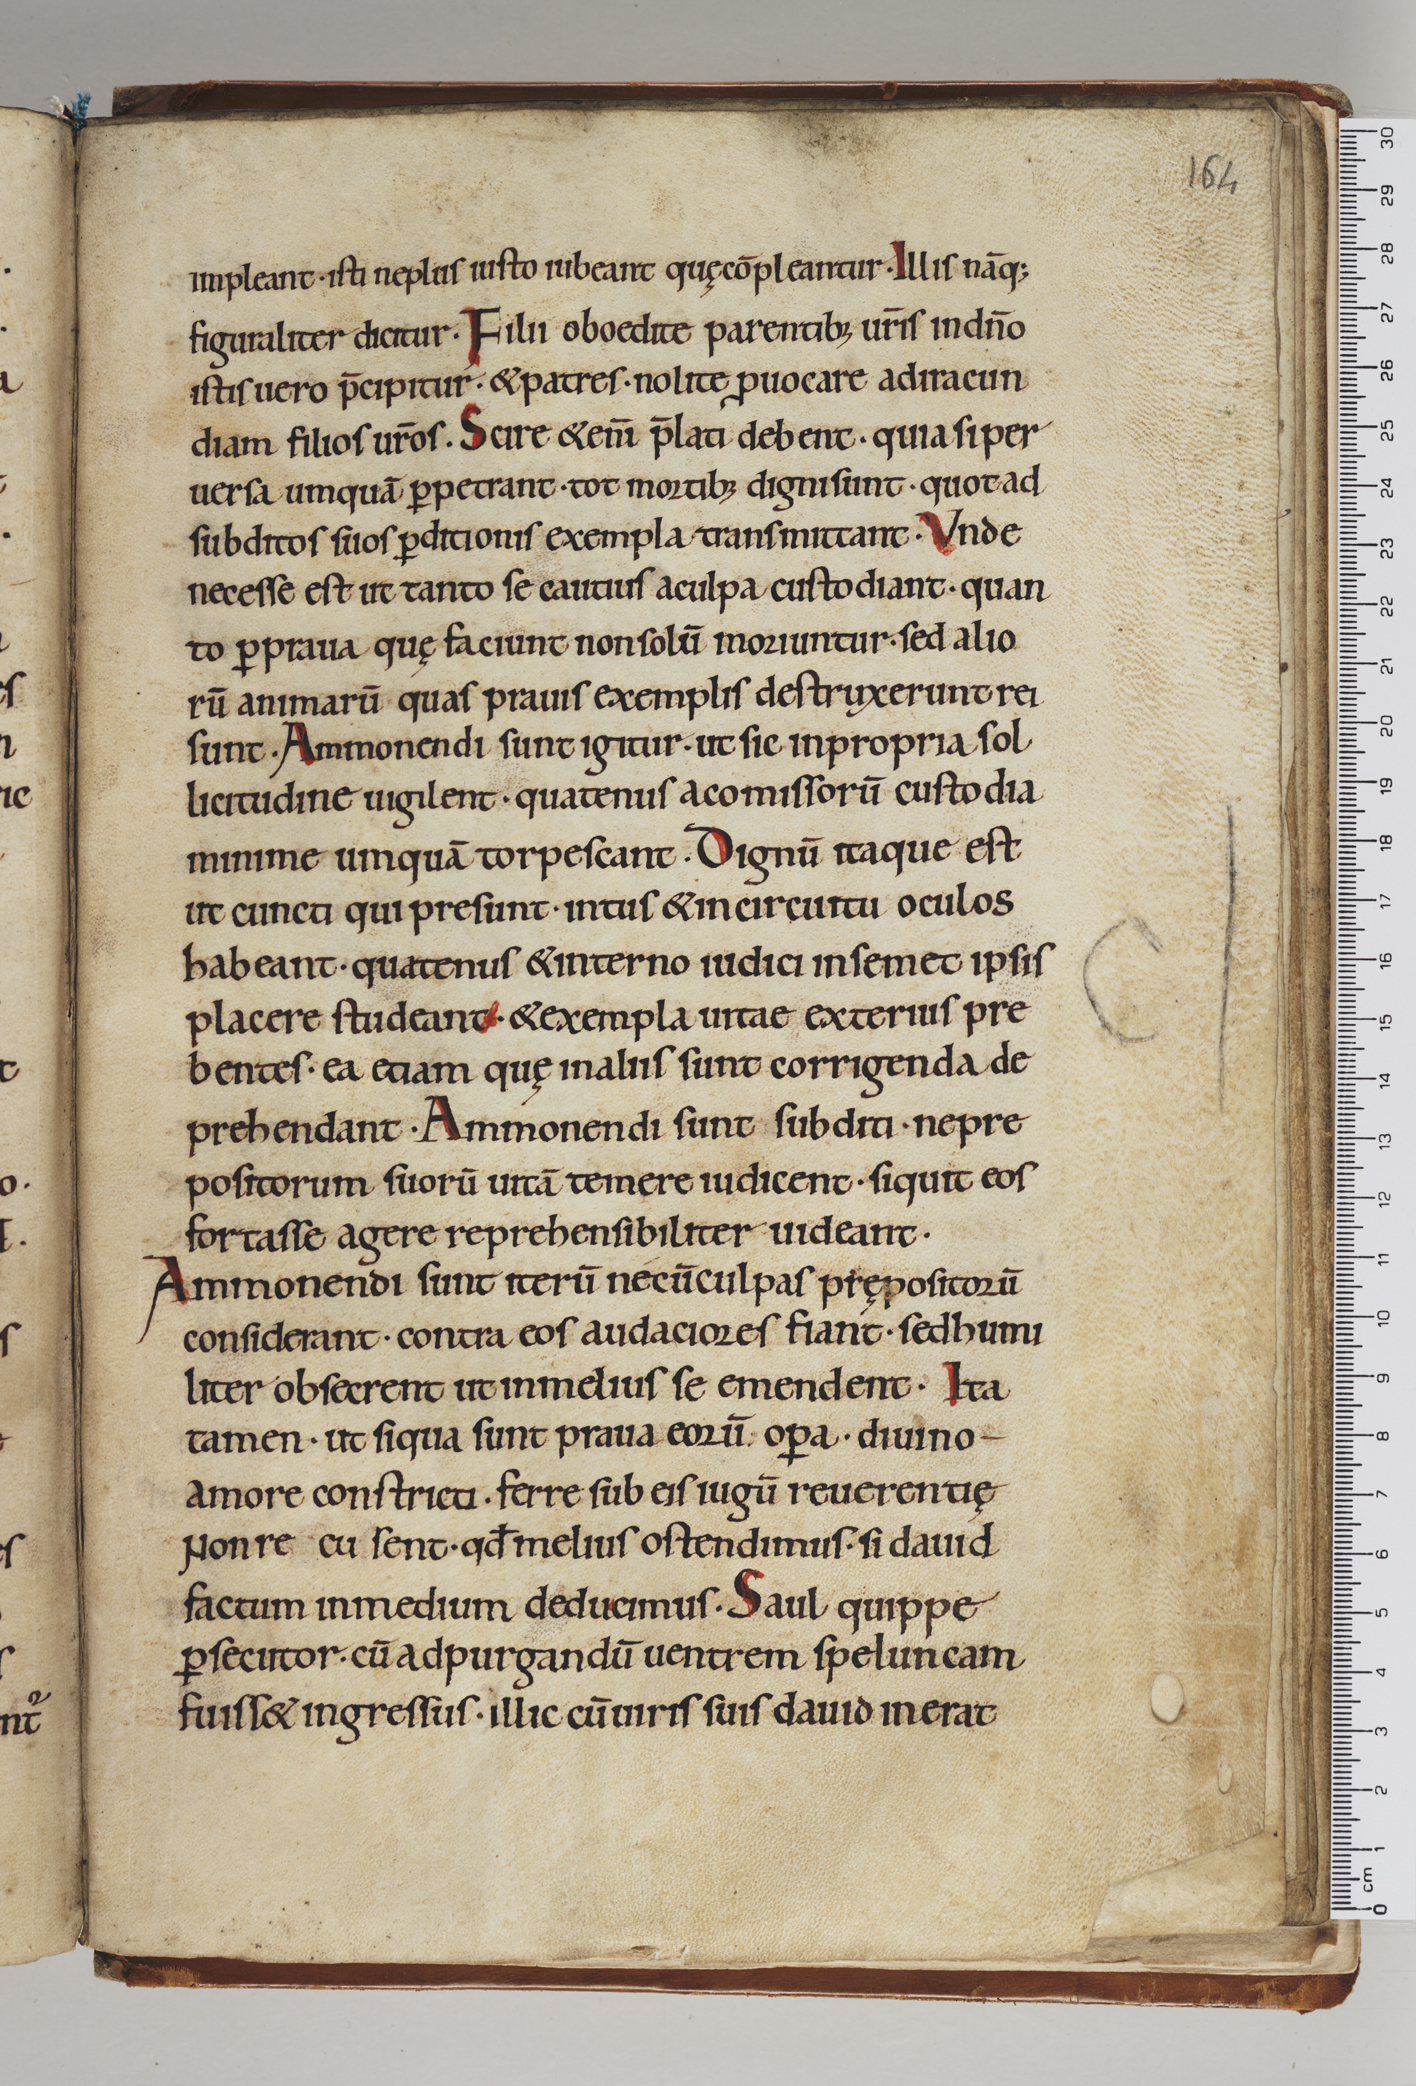 164
impleant · isti ne plus iusto iubeant quę cōpleantur · Illis nāq;
figuraliter dicitur · Filii oboedite parentib; ur̄is in dn̄o
istis uero p̄cipitur · & patres · nolite ꝓuocare ad iracun
diam filios ur̄os . Scire & eni̅ p̄lati debent · quia si per
uersa umquā ꝑpetrant · tot mortib; digni sunt · quot ad
subditos suos ꝑditionis exempla transmittant · Vnde
necesse est ut tanto se cautius a culpa custodiant · quan
to ꝑ praua quę faciunt non solū moriuntur · sed alio
rū animarū quas prauis exemplis destruxerunt rei
sunt . Ammonendi sunt igitur · ut sic in propria sol
licitudine uigilent · quatenus a comissorū custodia
minime umquā torpescant . Dignū itaque est
ut cuncti qui presunt · intus & in circuitu oculos
habeant · quatenus & interno iudici in semet ipsis
placere studeant · & exempla uitae exterius pre
bentes · ea etiam quę in aliis sunt corrigenda de
prehendant · Ammonendi sunt subditi · ne pre
positorum suorū uitā temere iudicent · si quit eos
fortasse agere reprehensibiliter uideant ·
Ammonendi sunt iterū ne cū culpas prępositorū
considerant · contra eos audaciores fiant · sed humi
liter obsecrent ut in melius se emendent · Ita
tamen · ut si qua sunt praua eorū oꝑa · diuino
amore constricti . ferre sub eis iugū reuerentię
non re cu sent · qd̄ melius ostendimus · si dauid
factum in medium deducimus · Saul quippe
ꝑsecutor · cū ad purgandū uentrem speluncam
fuiss& ingressus · illic cū uiris suis dauid inerat